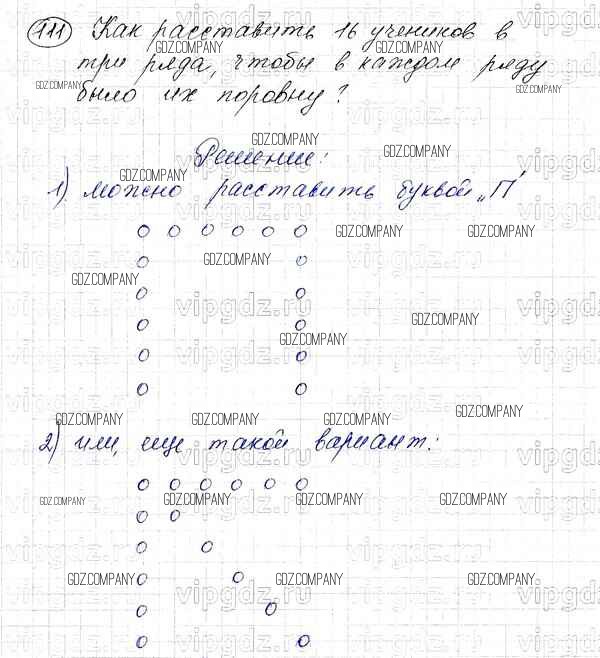 111 Как расставить 16 учеников в
три ряда, чтобы в каждом ряду
было их поровну?
Решение:
1) можно расставить буквой „П"
2) или, еще такой вариант:
GDZ.COMPANY
vipgdz.ru